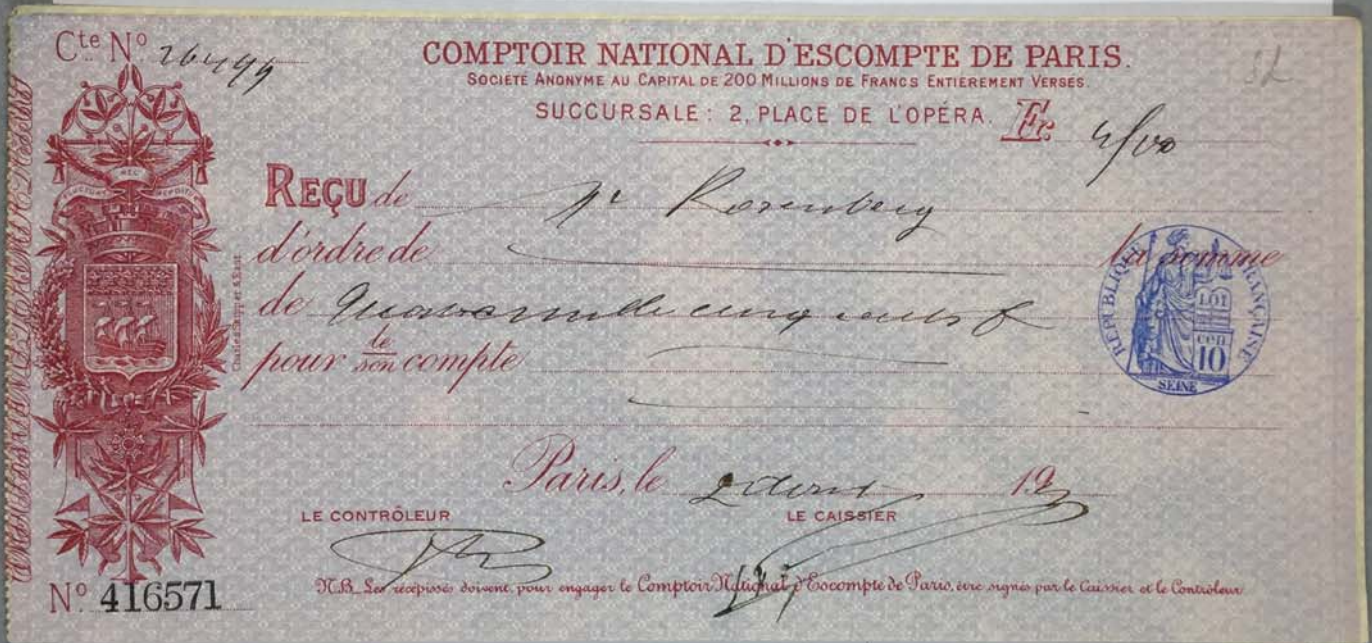 Cte No 26499
COMPTOIR NATIONAL D'ESCOMPTE DE PARIS.
SOCIÉTÉ ANONYME AU CAPITAL DE 200 MILLIONS DE FRANCS ENTIÈREMENT VERSÉS.
SUCCURSALE : 2, PLACE DE L'OPÉRA.
Fc
REÇU de Mr Rosenberg
d'ordre de la somme
de Quatre mille cinq cents f
pour le/son compte
RÉPUBLIQUE FRANÇAISE
LOI
cen
10
SEINE
Paris, le 2 19
LE CONTRÔLEUR LE CAISSIER
No 416571
N.B. Les récépissés doivent, pour engager le Comptoir National d'Escompte de Paris, être signés par le Caissier et le Contrôleur.